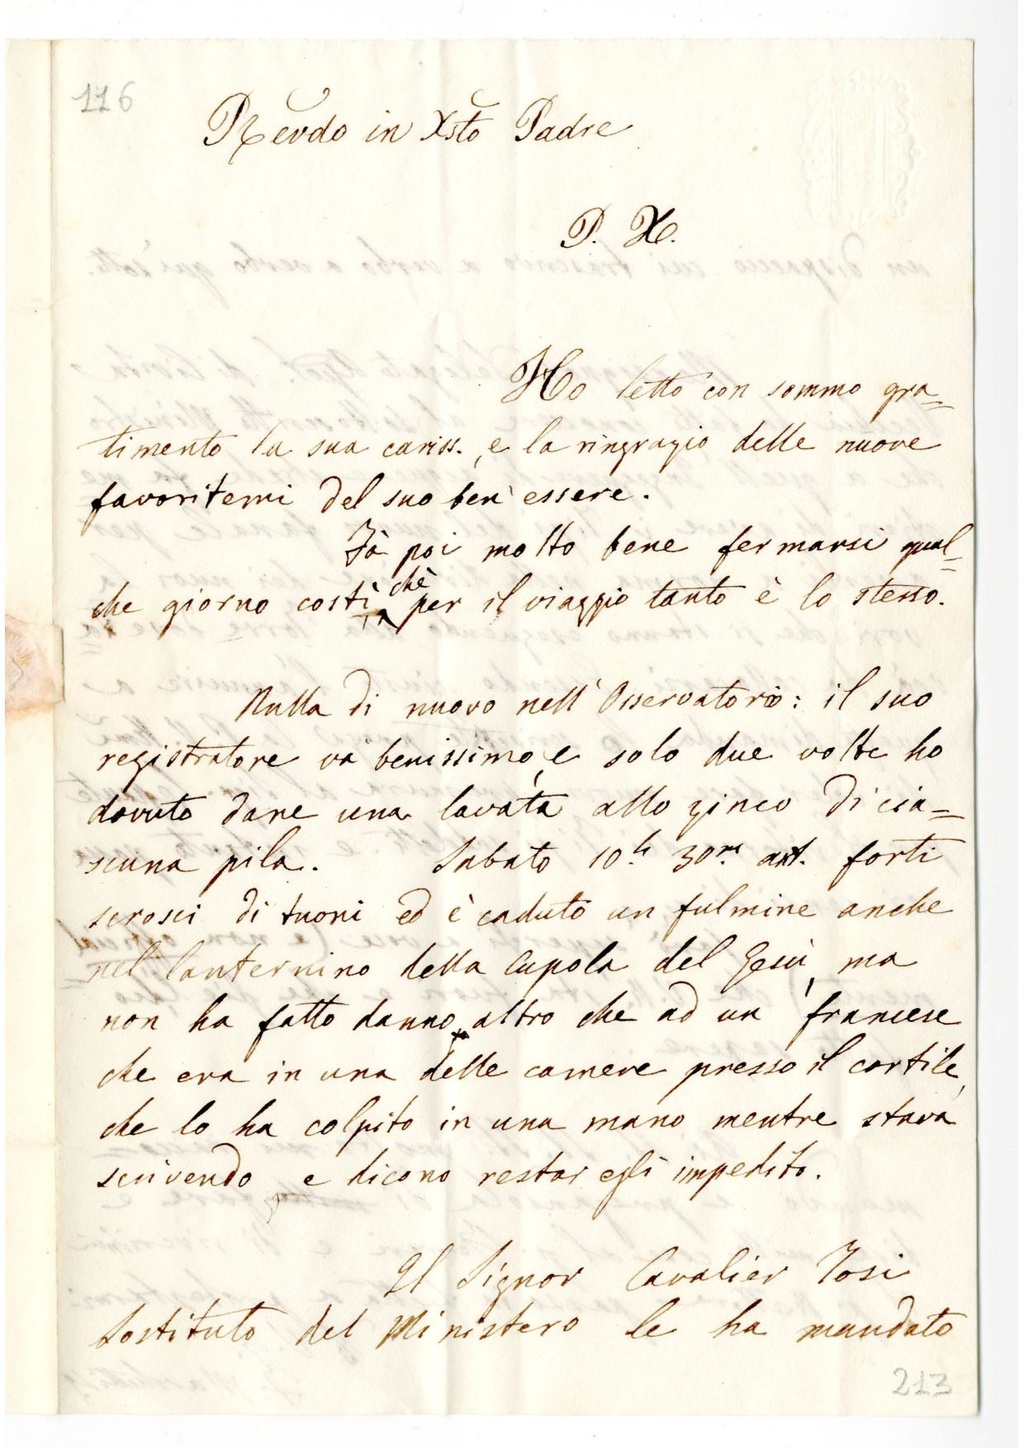 116
Revdo in Xsto Padre
P. X.
Ho letto con sommo gra=
timento la sua cariss., e la ringrazio delle nuove
favoritemi del suo ben' essere.
Fà poi molto bene fermarsi qual=
che giorno costì, chè per il viaggio tanto è lo stesso.
Nulla di nuovo nell' Osservatorio: il suo
registratore va benissimo, e solo due volte ho
dovuto dare una lavata allo zinco di cia=
scuna pila. Sabato 10.h 30.m ant. forti
scrosci di tuoni ed è caduto un fulmine anche
nel lanternino della Cupola del Gesù, ma
non ha fatto danno altro che ad un francese
che era in una delle camere presso il cortile,
che lo ha colpito in una mano mentre stava
scrivendo e dicono restar egli impedito.
Il Signor Cavalier Tosi
Sostituto del Ministero le ha mandato
213